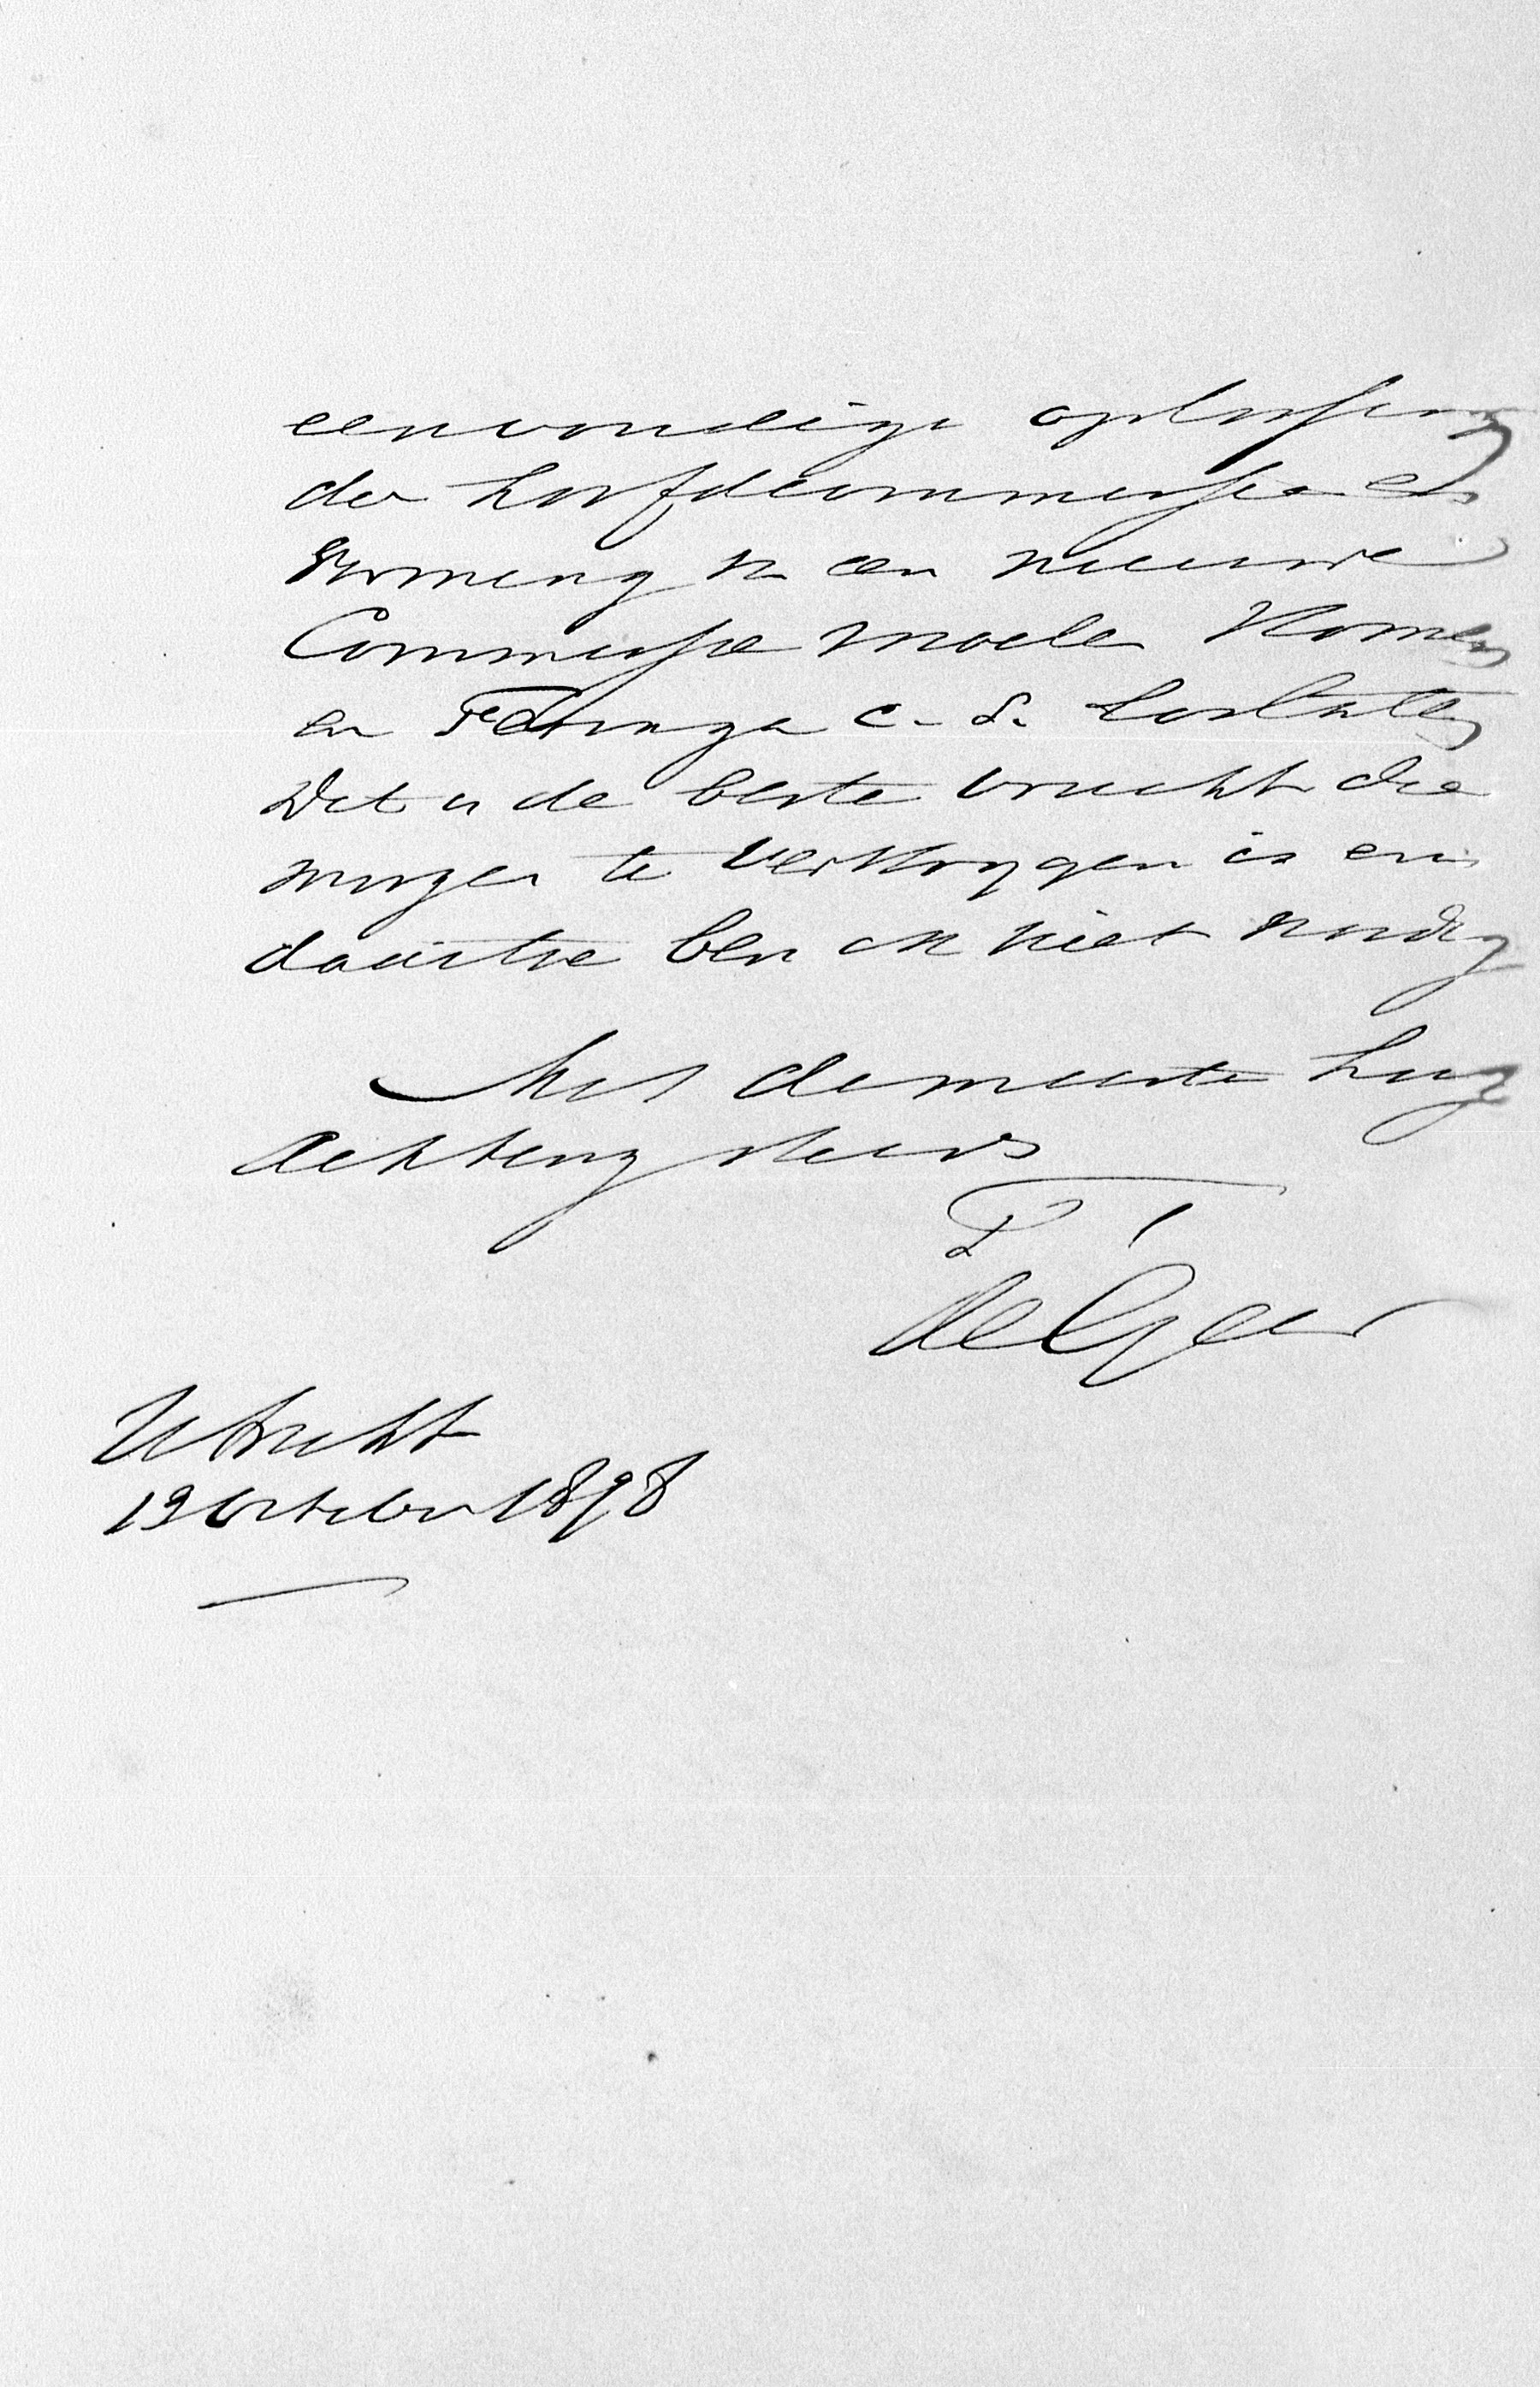 eenvoudige oplossing
der hoofdcommissie en
vorming v. een nieuwe
Commissie moeten komen
en Feringa c. s. loslaten
Dit is de beste vrucht die
morgen te verkrijgen is en
daartoe ben ik niet noodig
Met de meeste hoog
achting steeds
de Geer
Utrecht
19 October 1898